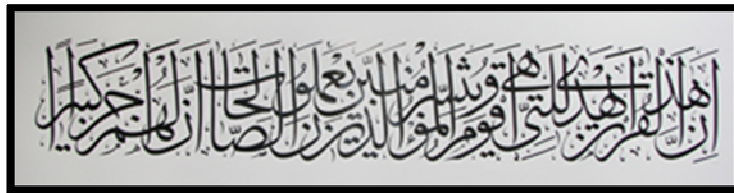 ان هذا القرآن يهدي للتي هي اقوم ويبشر المؤمنين الذين يعملون الصالحات ان لهم اجرا كبيرا